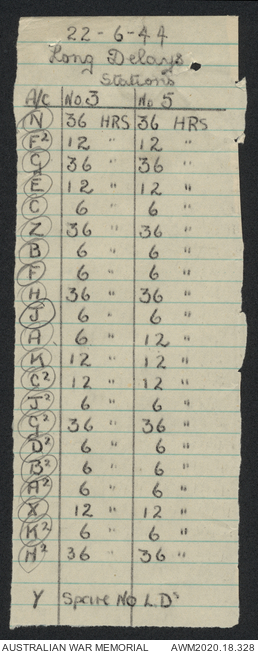 22-6-44
Long Delays
Stations
A/C No 3 No 5
N 36 HRS 36 HRS
F² 12 " 12 "
G 36 " 36 "
E 12 " 12 "
C 6 " 6 "
Z 36 " 36 "
B 6 " 6 "
F 6 " 6 "
H 36 " 36 "
J 6 " 6 "
A 6 " 12 "
K 12 " 12 "
C² 12 " 12 "
J² 6 " 6 "
G² 36 " 36 "
D² 6 " 6 "
B² 6 " 6 "
A² 6 " 6 "
X 12 " 12 "
K² 6 " 6 "
H² 36 " 36 "
Y Spare No L.Ds
AUSTRALIAN WAR MEMORIAL AWM2020.18.328